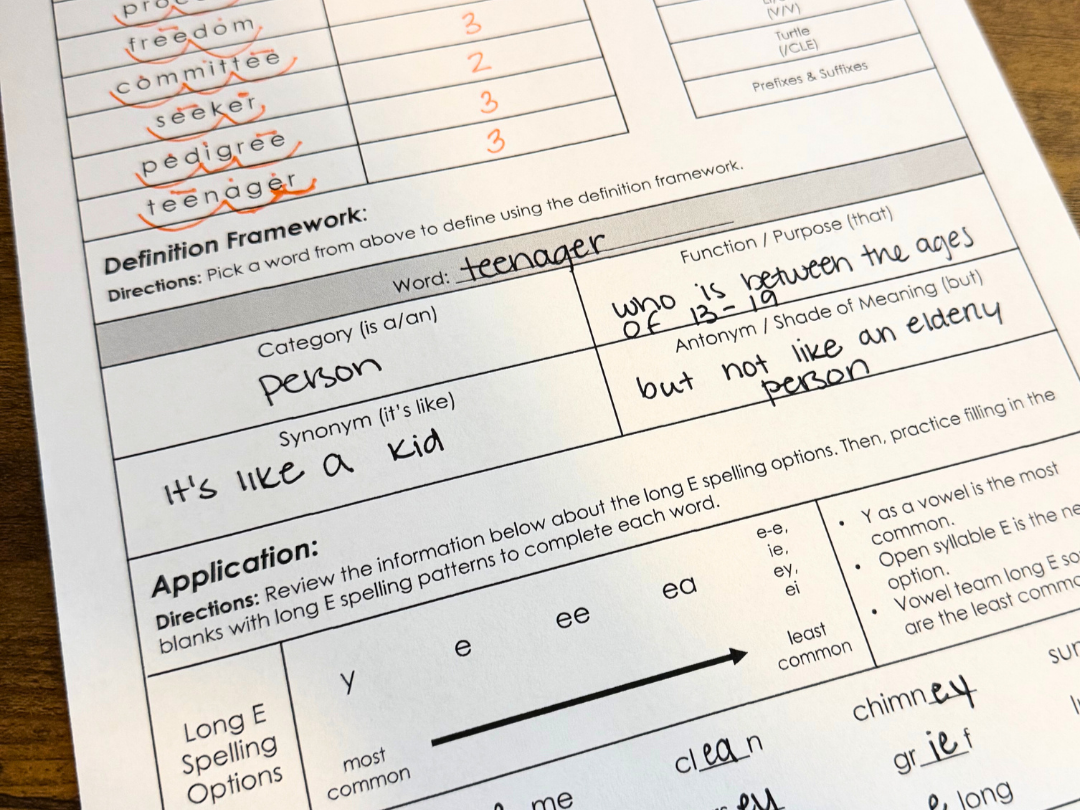 freedom
3
(V/V)
committee
2
Turtle
(/CLE)
seeker
3
Prefixes & Suffixes
pedigree
3
teenager
Definition Framework:
Directions: Pick a word from above to define using the definition framework.
Word: teenager
Category (is a/an)
person
Function / Purpose (that)
who is between the ages
of 13-19
Synonym (it's like)
It's like a kid
Antonym / Shade of Meaning (but)
but not like an elderly
person
Application:
Directions: Review the information below about the long E spelling options. Then, practice filling in the
blanks with long E spelling patterns to complete each word.
Long E
Spelling
Options
y
e
ee
ea
e-e,
ie,
ey,
ei
most
common
least
common
• Y as a vowel is the most
common.
• Open syllable E is the
option.
• Vowel team long E
are the least
clean
chimney
grief
me
e long